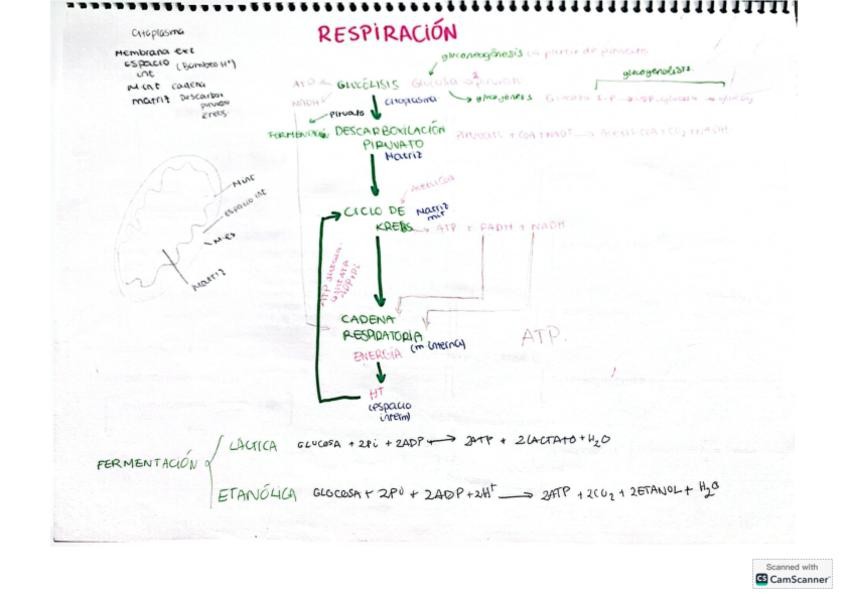 RESPIRACIÓN
Citoplasma
Membrana ext
espacio int (Bombeo H⁺)
m int cadena
matriz Descarbox piruvato
Krebs
gluconeogénesis (a partir de piruvato
glucogenolisis
ATP
GLUCÓLISIS
Glucosa
NADH
Citoplasma
Piruvato
FERMENTACIÓN
DESCARBOXILACIÓN
PIRUVATO
Matriz
CICLO DE
KREBS
Matriz
mit
ATP + FADH + NADH
Acetil CoA
M int
espacio int
M ext
Matriz
ATP sintasa
CADENA
RESPIRATORIA
(m interna)
ENERGÍA
ATP.
H⁺
(espacio
interm)
FERMENTACIÓN
LÁCTICA GLUCOSA + 2Pi + 2ADP → 2ATP + 2LACTATO + H₂O
ETANÓLICA GLOCOSA + 2Pi + 2ADP + 2H⁺ → 2ATP + 2CO₂ + 2ETANOL + H₂O
Scanned with
CS CamScanner